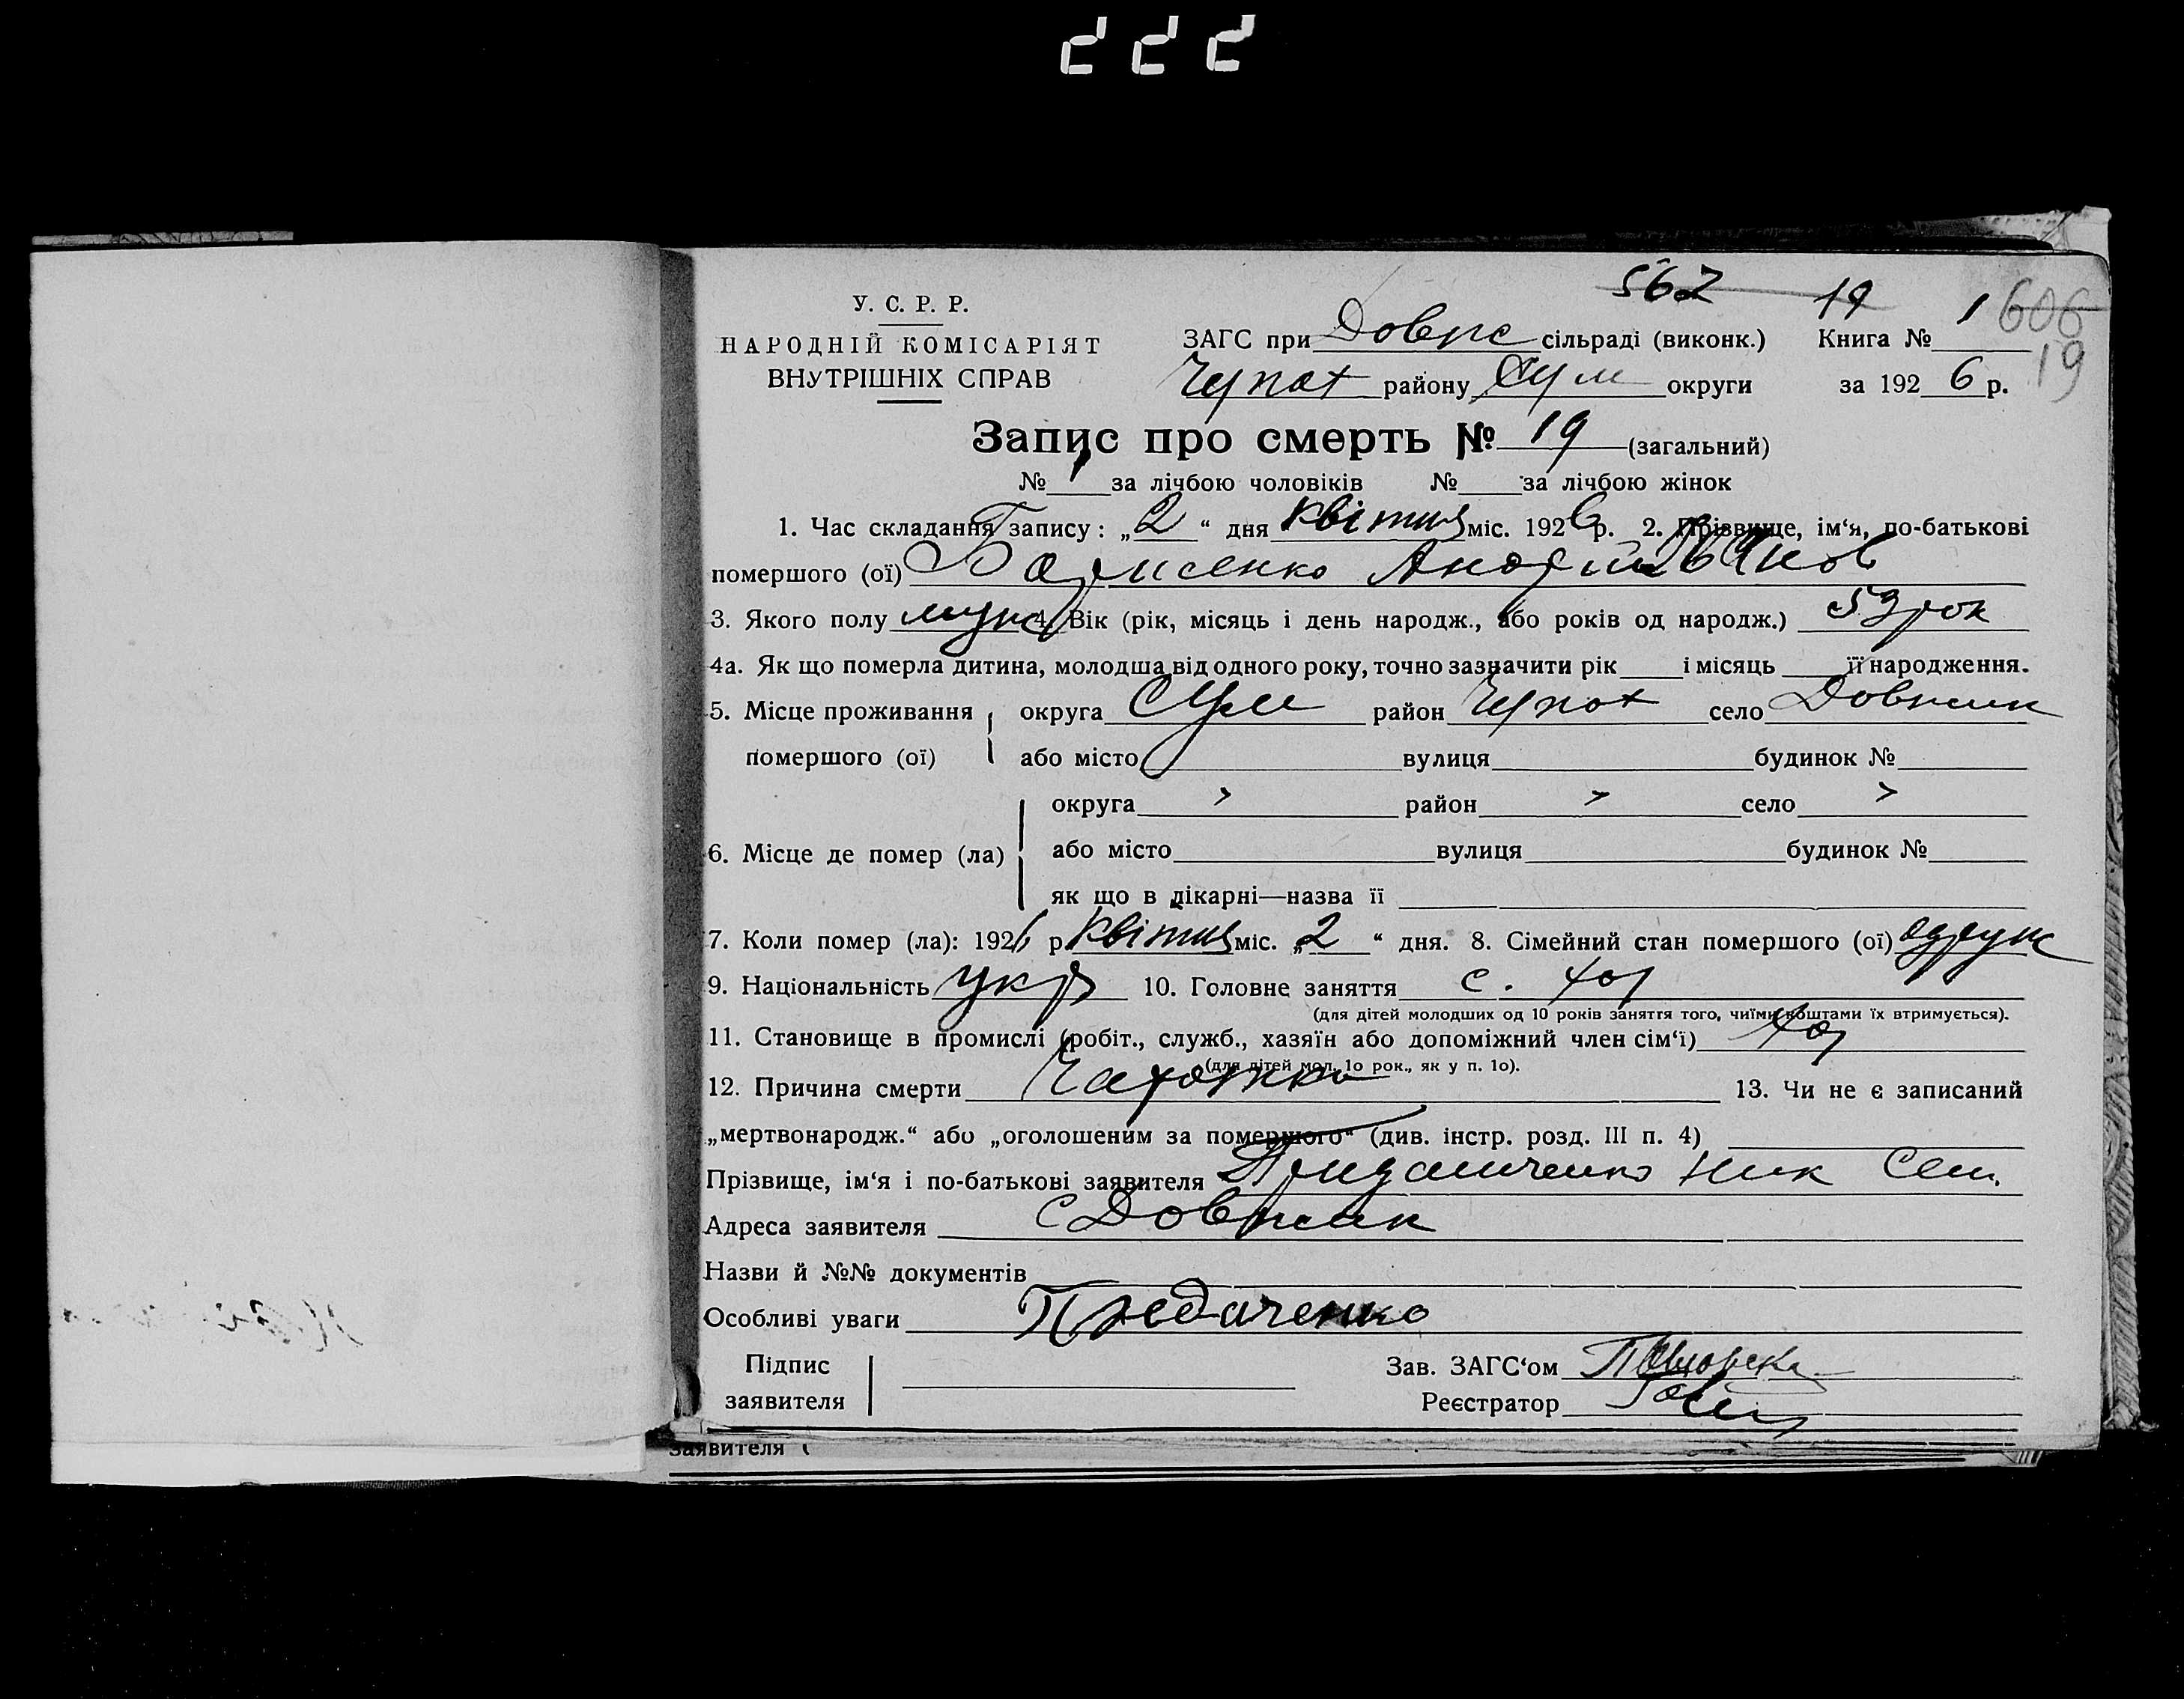 222
562 19 1 606
У. С. Р. Р.
НАРОДНІЙ КОМІСАРІЯТ
ВНУТРІШНІХ СПРАВ
ЗАГС при Довж сільраді (виконк.) Книга №
19
Чупах району Сум округи за 192 6 р.
Запис про смерть № 19 (загальний)
№ за лічбою чоловіків № за лічбою жінок
1. Час складання запису: „2“ дня квітня міс. 1926 р. 2. Прізвище, ім‘я, по-батькові
помершого (ої) Андрій Іванов
3. Якого полу муж 4. Вік (рік, місяць і день народж., або років од народж.) 53 рок
4а. Як що померла дитина, молодша від одного року, точно зазначити рік і місяць її народження.
5. Місце проживання округа Сум район Чупах село Довжик
помершого (ої) або місто вулиця будинок №
округа > район > село >
6. Місце де помер (ла) або місто вулиця будинок №
як що в лікарні—назва її
7. Коли помер (ла): 1926 р. квітня міс. „2“ дня. 8. Сімейний стан помершого (ої) одруж
9. Національність укр 10. Головне заняття с. хоз
(для дітей молодших од 10 років заняття того, чиїми коштами їх втримується).
11. Становище в промислі (робіт., служб., хазяїн або допоміжний член сім‘ї) хоз
(для дітей мол. 10 рок., як у п. 10).
12. Причина смерти Чахотка 13. Чи не є записаний
„мертвонародж.“ або „оголошеним за помершого“ (див. інстр. розд. III п. 4)
Прізвище, ім‘я і по-батькові заявителя Ник Сем.
Адреса заявителя с Довжик
Назви й №№ документів
Особливі уваги Предаченко
Підпис Зав. ЗАГС‘ом
заявителя Реєстратор
заявителя